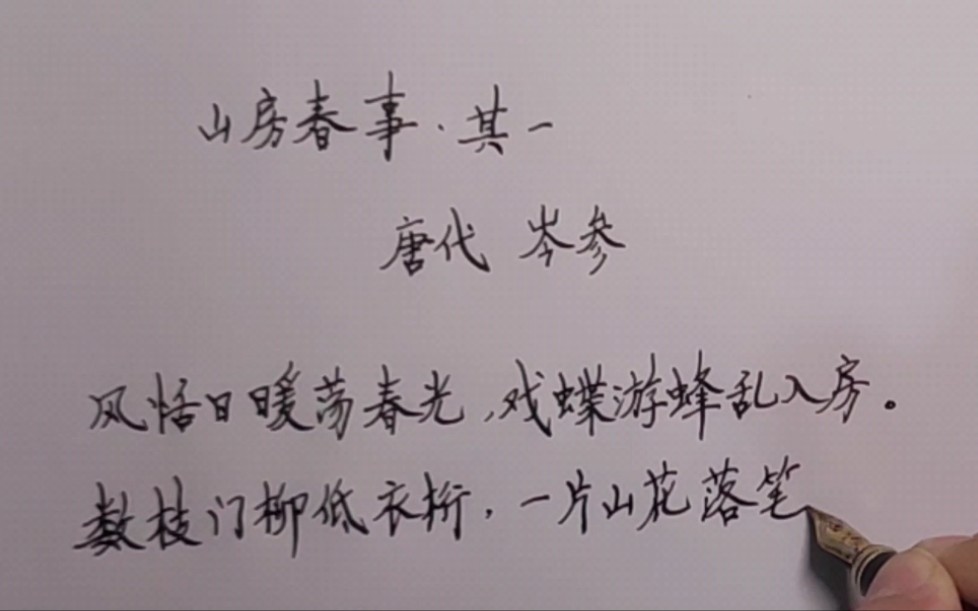 山房春事·其一
唐代 岑参
风恬日暖荡春光,戏蝶游蜂乱入房。
数枝门柳低衣桁,一片山花落笔